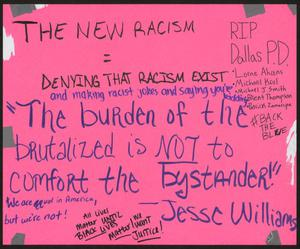 THE NEW RACISM
=
DENYING THAT RACISM EXIST
and making racist jokes and saying you're kidding
"The burden of the
brutalized is NOT to
comfort the bystander!"
— Jesse Williams
We are equal in America,
but we're not!
All Lives
Matter UNTIL
BLACK LIVES
Matter!
We
WANT
JUSTICE!
RIP
Dallas P.D.
• Lorne Ahrens
• Michael Krol
• Michael J Smith
• Brent Thompson
• Patrick Zamarripa
#BACK
THE
BLUE